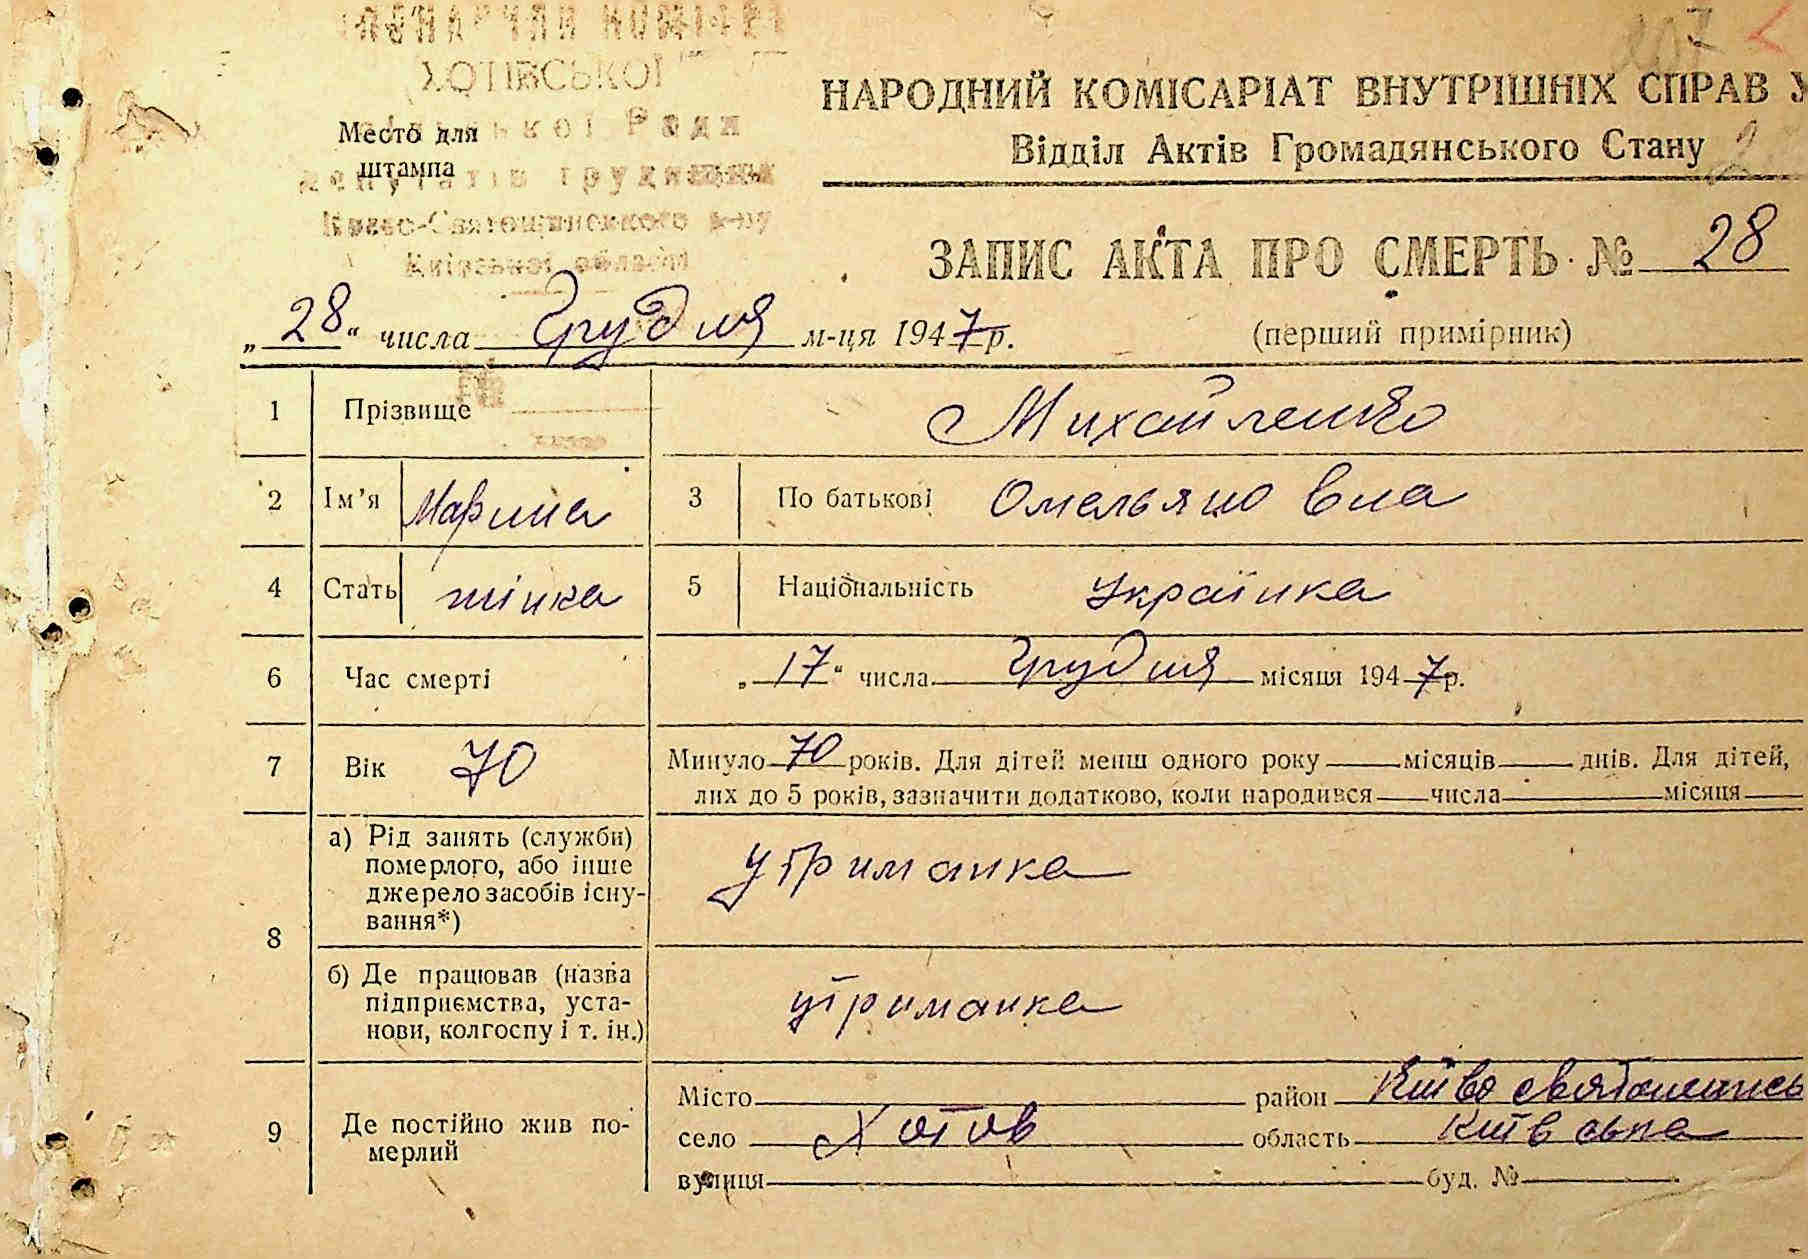 ХОТІВСЬКОЇ
Место для
штампа
Ради
депутатів трудящих
Києво-Святошинського р-ну
Київської області
НАРОДНИЙ КОМІСАРІАТ ВНУТРІШНІХ СПРАВ У
Відділ Актів Громадянського Стану
2
ЗАПИС АКТА ПРО СМЕРТЬ № 28
„28“ числа Грудня м-ця 1947 р.
(перший примірник)
1 Прізвище Михайленко
2 Ім’я Марина 3 По батькові Омельяновна
4 Стать жінка 5 Національність Українка
6 Час смерті „17“ числа Грудня місяця 1947 р.
7 Вік 70 Минуло 70 років. Для дітей менш одного року місяців днів. Для дітей,
лих до 5 років, зазначити додатково, коли народився числа місяця
8 а) Рід занять (служби)
померлого, або інше
джерело засобів існу-
вання*)
утриманка
б) Де працював (назва
підприємства, уста-
нови, колгоспу і т. ін.)
утриманка
9 Де постійно жив по-
мерлий
Місто район Київо святошинсь
село Хотов область Київська
вулиця буд. №